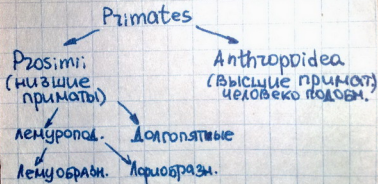 Primates
Prosimii
(низшие
приматы)
Anthropoidea
(высшие примат)
человеко подобн.
лемуропод.
Долгопятные
Лемуобразн.
Лориобразн.